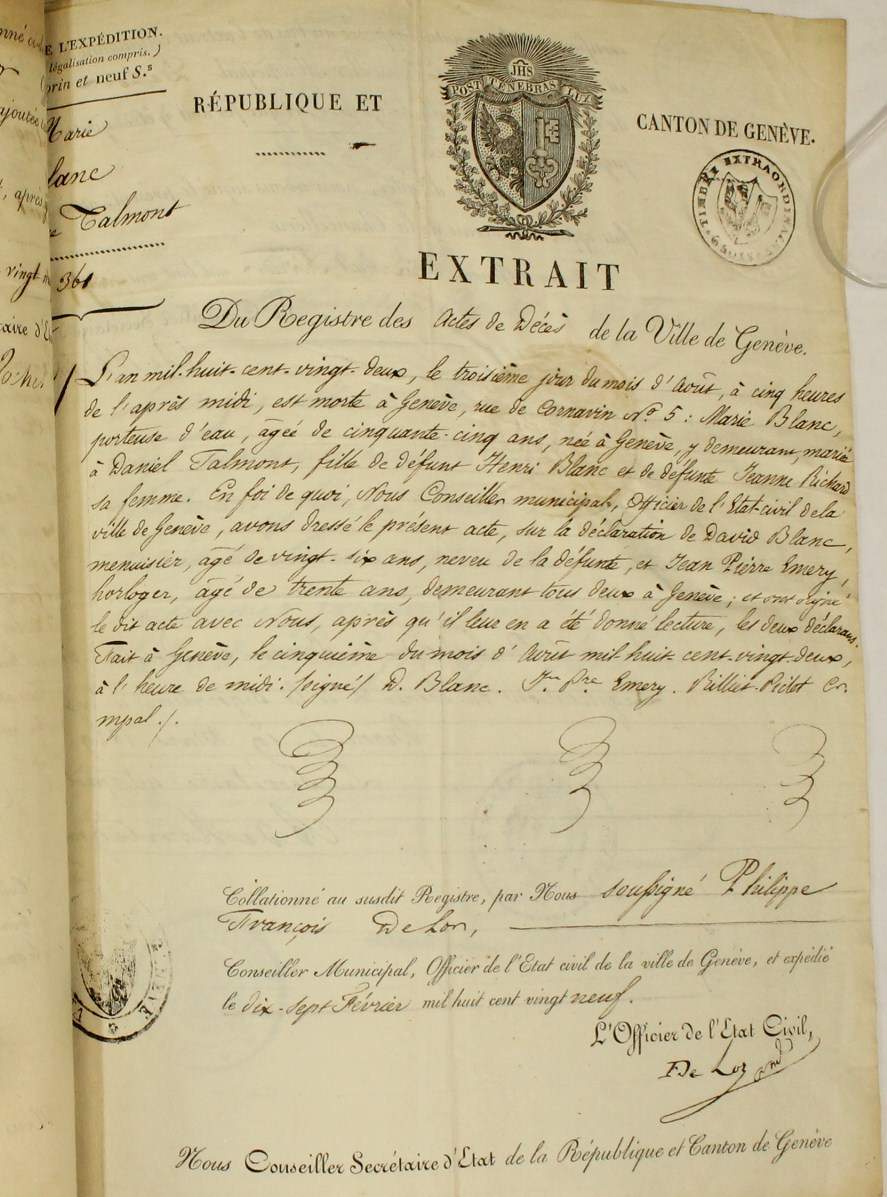 E L'EXPÉDITION.
légalisation compris.)
prin et neuf S.s
Marie
lanc
Talmont
361
RÉPUBLIQUE ET
CANTON DE GENÈVE.
JHS
POST TENEBRAS LUX
TIMBRE EXTRAORDINAIRE
EXTRAIT
Du Registre des Actes de Décès de la Ville de Genève.
L'an mil-huit-cent-vingt-deux, le troisième jour du mois d'Août, à cinq heures
de l'après midi, est morte à Genève, rue de Cornavin No. 5 : Marie Blanc,
porteuse d'eau, âgée de cinquante-cinq ans, née à Genève, y demeurant, mariée
à Daniel Talmont, fille de défunt Henri Blanc et de défunte Jeanne Richard
sa femme. En foi de quoi, Nous Conseiller municipal, Officier de l'Etat-civil de la
ville de Genève, avons dressé le présent acte, sur la déclaration de David Blanc,
menuisier, âgé de vingt-six ans, neveu de la défunte, et Jean Pierre Emery,
horloger, âgé de trente ans, demeurant tous deux à Genève ; et ont signé
le dit acte avec Nous, après qu'il leur en a été donné lecture, les deux déclarans.
Fait à Genève, le cinquième du mois d'Août mil huit-cent-vingt-deux,
à l'heure de midi. /signé/ D. Blanc. Jn Pre Emery. Rilliet-Pictet Cer
mpal./.
Collationné au susdit Registre, par Nous soussigné Philippe
François DeLor,
Conseiller Municipal, Officier de l'Etat civil de la ville de Genève, et expédié
le dix-sept Février mil huit cent vingt neuf.
L'Officier de l'Etat Civil,
De Lor
Nous Conseiller Secrétaire d'Etat de la République et Canton de Genève